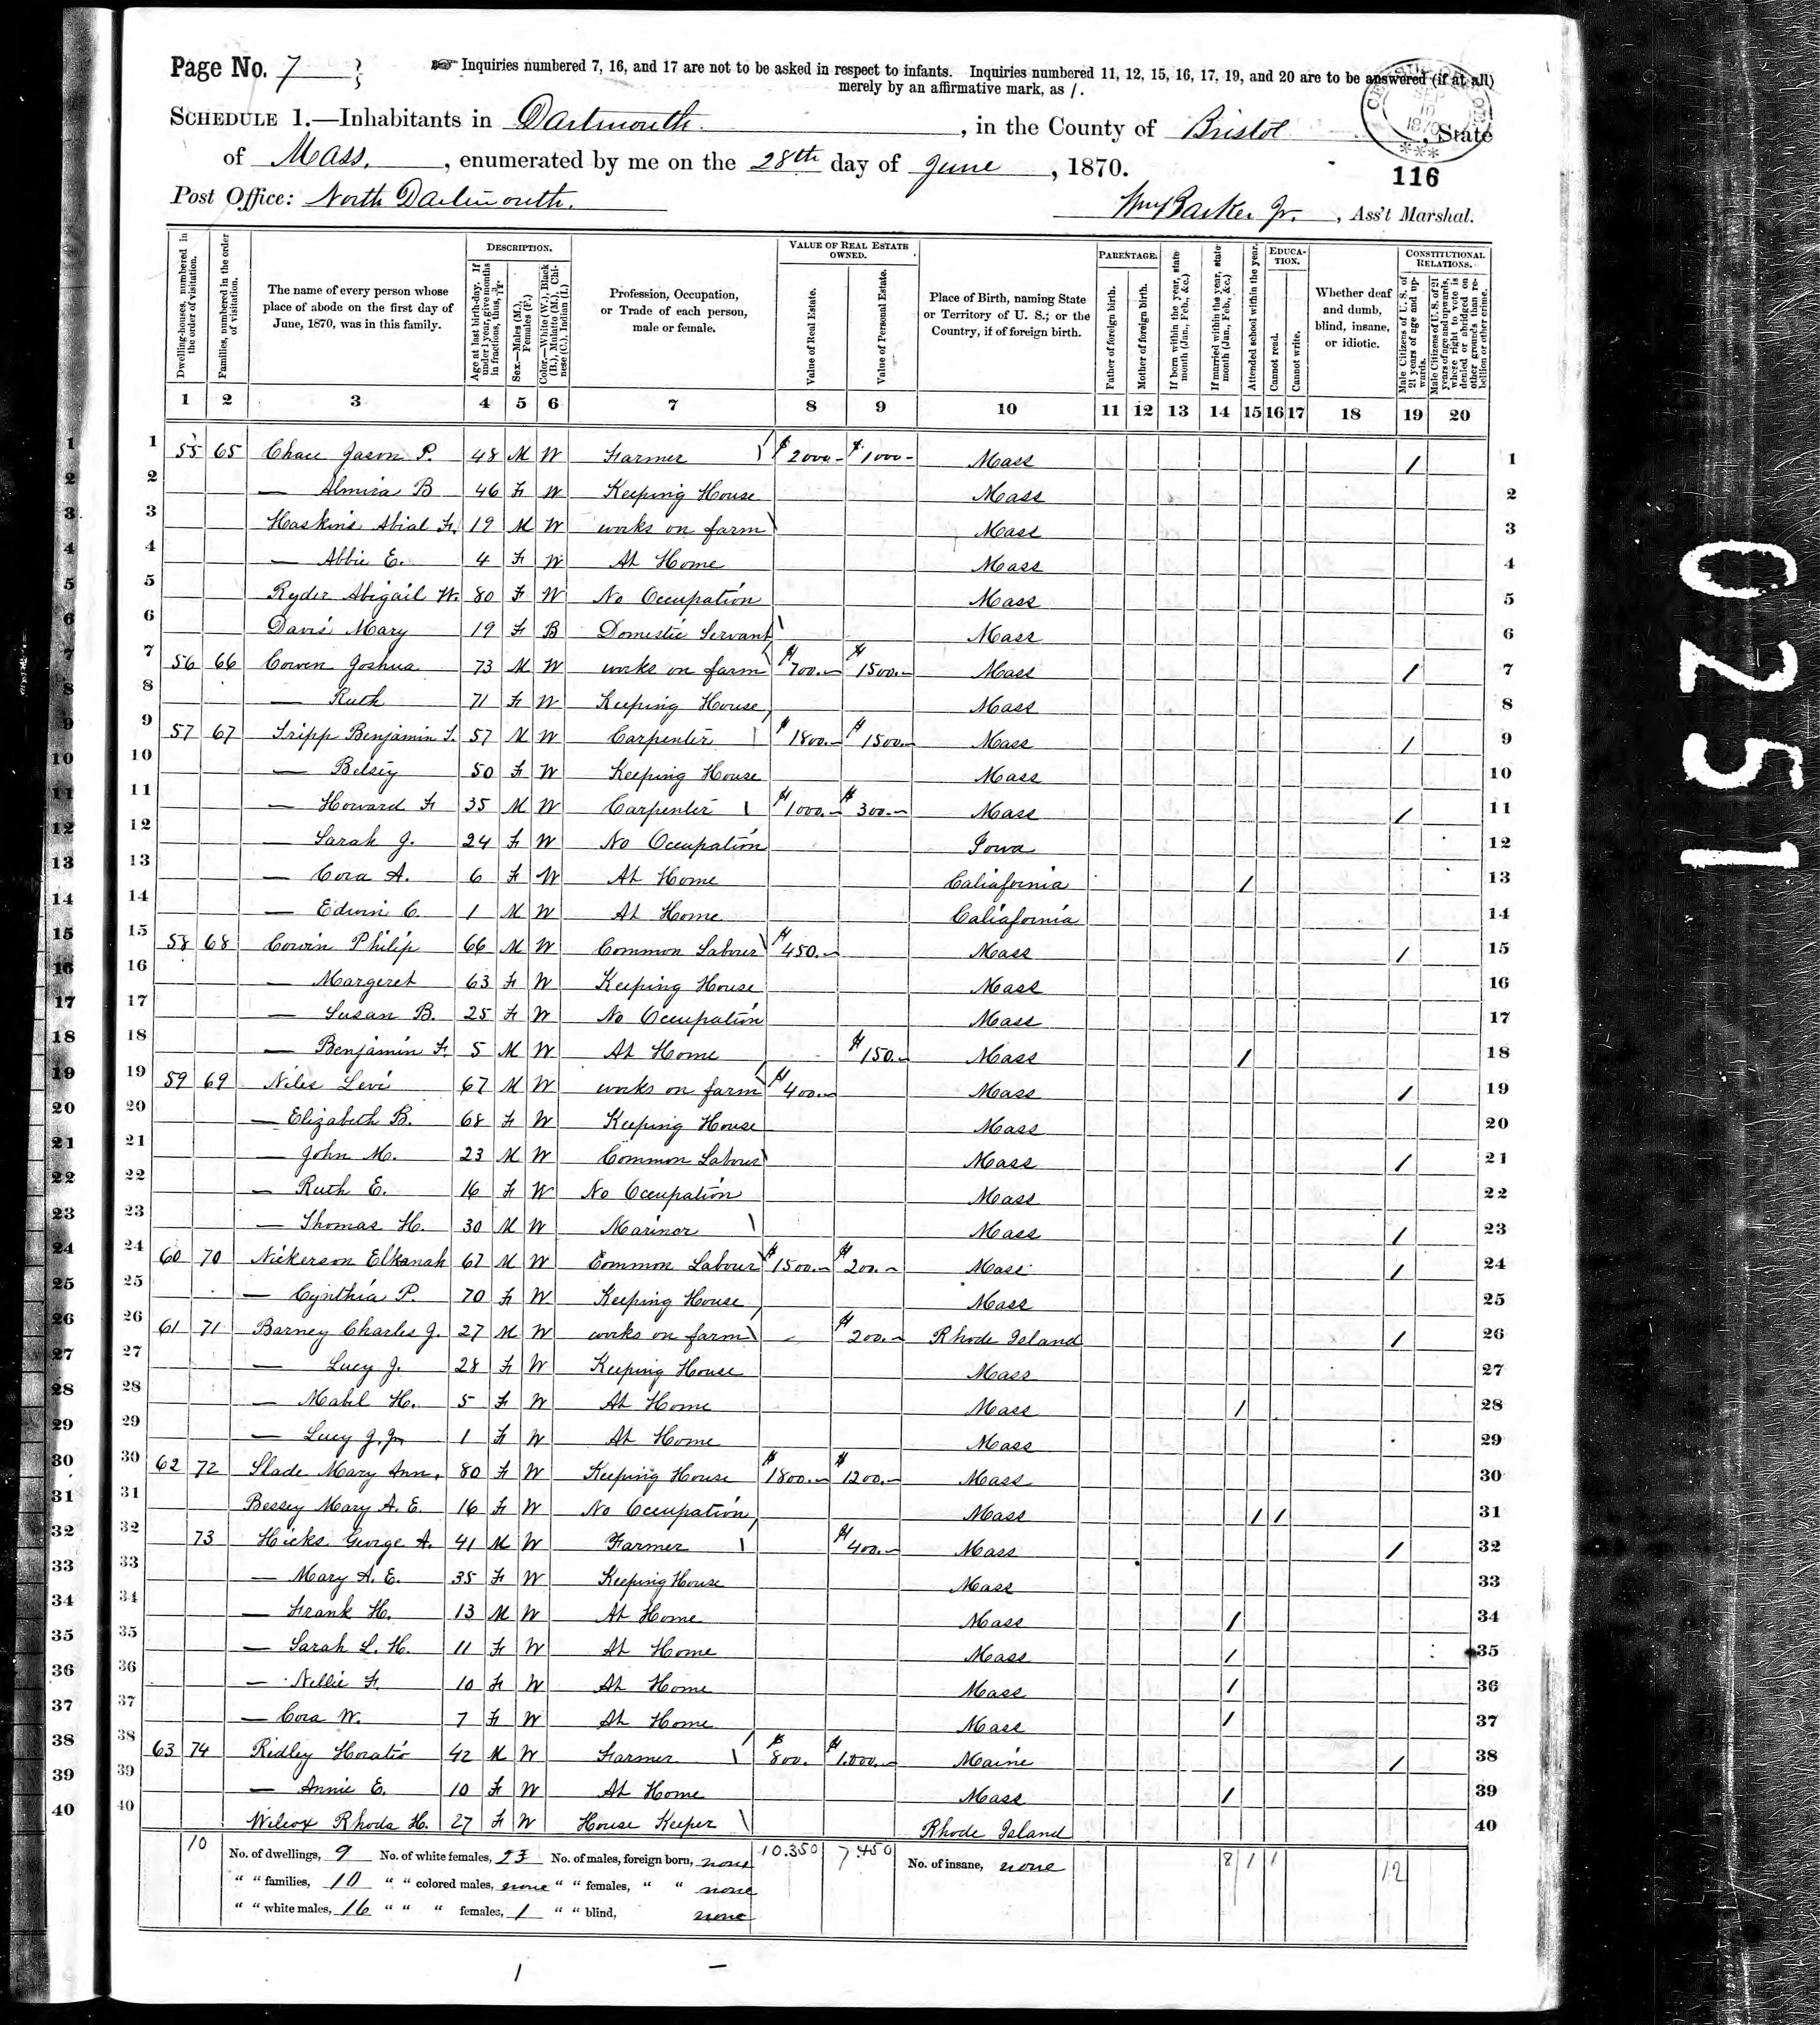 Page No. 7
Inquiries numbered 7, 16, and 17 are not to be asked in respect to infants. Inquiries numbered 11, 12, 15, 16, 17, 19, and 20 are to be answered (if at all)
merely by an affirmative mark, as /.
SCHEDULE 1.—Inhabitants in Dartmouth, in the County of Bristol, State
of Mass., enumerated by me on the 28th day of June, 1870.
116
Post Office: North Dartmouth.
Wm Barker Jr., Ass't Marshal.
Dwelling-houses, numbered in the order of visitation.
Families, numbered in the order of visitation.
The name of every person whose place of abode on the first day of June, 1870, was in this family.
DESCRIPTION.
Age at last birth-day. If under 1 year, give months in fractions, thus, 3/12.
Sex.—Males (M.), Females (F.)
Color.—White (W.), Black (B.), Mulatto (M.), Chinese (C.), Indian (I.)
Profession, Occupation, or Trade of each person, male or female.
VALUE OF REAL ESTATE OWNED.
Value of Real Estate.
Value of Personal Estate.
Place of Birth, naming State or Territory of U. S.; or the Country, if of foreign birth.
PARENTAGE.
Father of foreign birth.
Mother of foreign birth.
If born within the year, state month (Jan., Feb., &c.)
If married within the year, state month (Jan., Feb., &c.)
Attended school within the year.
EDUCATION.
Cannot read.
Cannot write.
Whether deaf and dumb, blind, insane, or idiotic.
CONSTITUTIONAL RELATIONS.
Male Citizens of U. S. of 21 years of age and upwards.
Male Citizens of U. S. of 21 years of age and upwards, where right to vote is denied or abridged on other grounds than rebellion or other crime.
1 2 3 4 5 6 7 8 9 10 11 12 13 14 15 16 17 18 19 20
1 55 65 Chace Jason P. 48 M W Farmer $2000- $1000- Mass / 1
2 — Almira B 46 F W Keeping House Mass 2
3 Haskins Abial F. 19 M W works on farm Mass 3
4 — Abbie E. 4 F W At Home Mass 4
5 Ryder Abigail W. 80 F W No Occupation Mass 5
6 Davis Mary 19 F B Domestic Servant Mass 6
7 56 66 Cowen Joshua 73 M W works on farm $700.- $1500.- Mass / 7
8 — Ruth 71 F W Keeping House Mass 8
9 57 67 Tripp Benjamin T. 57 M W Carpenter $1800.- $1500.- Mass / 9
10 — Betsey 50 F W Keeping House Mass 10
11 — Howard F 35 M W Carpenter $1000.- $300.- Mass / 11
12 — Sarah J. 24 F W No Occupation Iowa 12
13 — Cora A. 6 F W At Home Caliafornia / 13
14 — Edwin C. 1 M W At Home Caliafornia 14
15 58 68 Cowin Philip 66 M W Common Labour $450.- Mass / 15
16 — Margeret 63 F W Keeping House Mass 16
17 — Susan B. 25 F W No Occupation Mass 17
18 — Benjamin F. 5 M W At Home $150.- Mass / 18
19 59 69 Niles Levi 67 M W works on farm $400.- Mass / 19
20 — Elizabeth B. 68 F W Keeping House Mass 20
21 — John M. 23 M W Common Labour Mass / 21
22 — Ruth E. 16 F W No Occupation Mass 22
23 — Thomas H. 30 M W Marinor Mass / 23
24 60 70 Nickerson Elkanah 67 M W Common Labour $1500.- $200.- Mass / 24
25 — Cynthia P. 70 F W Keeping House Mass 25
26 61 71 Barney Charles J. 27 M W works on farm - $200.- Rhode Island / 26
27 — Lucy J. 28 F W Keeping House Mass 27
28 — Mabel H. 5 F W At Home Mass / 28
29 — Lucy J. Jr 1 F W At Home Mass 29
30 62 72 Slade Mary Ann. 80 F W Keeping House $1800.- $1200.- Mass 30
31 Bessey Mary A. E. 16 F W No Occupation Mass / / 31
32 73 Hicks George A. 41 M W Farmer $400.- Mass / 32
33 — Mary A. E. 35 F W Keeping House Mass 33
34 — Frank H. 13 M W At Home Mass / 34
35 — Sarah L. H. 11 F W At Home Mass / 35
36 — Nellie F. 10 F W At Home Mass / 36
37 — Cora W. 7 F W At Home Mass / 37
38 63 74 Ridley Horatio 42 M W Farmer $800. $1.000.- Maine / 38
39 — Annie E. 10 F W At Home Mass / 39
40 Wilcox Rhoda H. 27 F W House Keeper Rhode Island 40
10 No. of dwellings, 9 No. of white females, 23 No. of males, foreign born, none 10.350 7.450 No. of insane, none 8 1 1 12
" " families, 10 " " colored males, none " " females, " " none
" " white males, 16 " " " females, 1 " " blind, none
0251